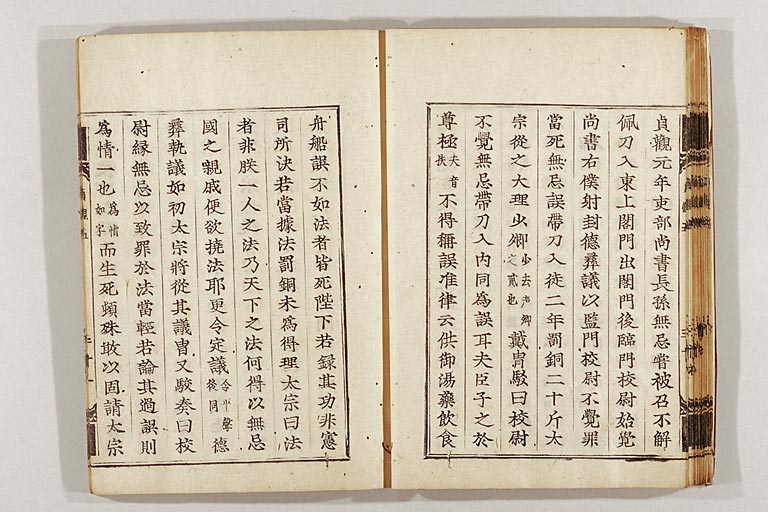 貞觀元年吏部尚書長孫無忌嘗被召不解
佩刀入東上閤門出閤門後臨門校尉始覺
尚書右僕射封德彝議以監門校尉不覺罪
當死無忌誤帶刀入徒二年罰銅二十斤太
宗從之大理少卿少去聲卿之貳也戴胄駁曰校尉
不覺無忌帶刀入內同爲誤耳夫臣子之於
尊極夫音扶不得稱誤准律云供御湯藥飲食
舟船誤不如法者皆死陛下若録其功非憲
司所決若當據法罰銅未爲得理太宗曰法
者非朕一人之法乃天下之法何得以無忌
國之親戚便欲撓法耶更令定議令平聲後同德
彝執議如初太宗將從其議胄又駁奏曰校
尉縁無忌以致罪於法當輕若論其過誤則
爲情一也爲情如字而生死頓殊敢以固請太宗